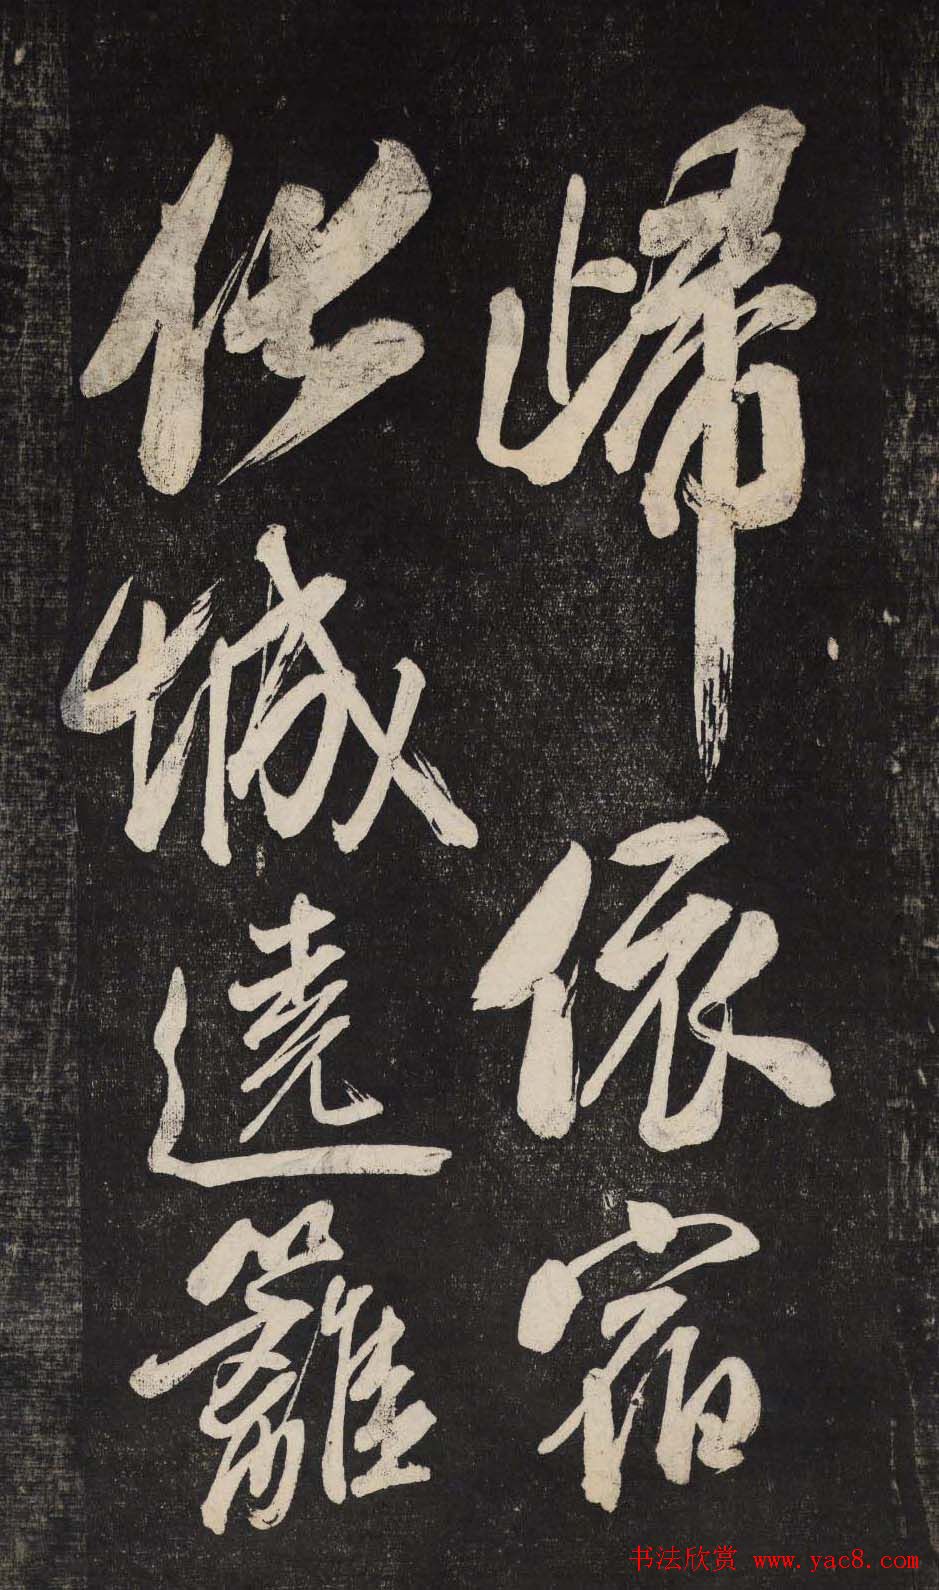 歸依宿
化城遶籬
书法欣赏 www.yac8.com